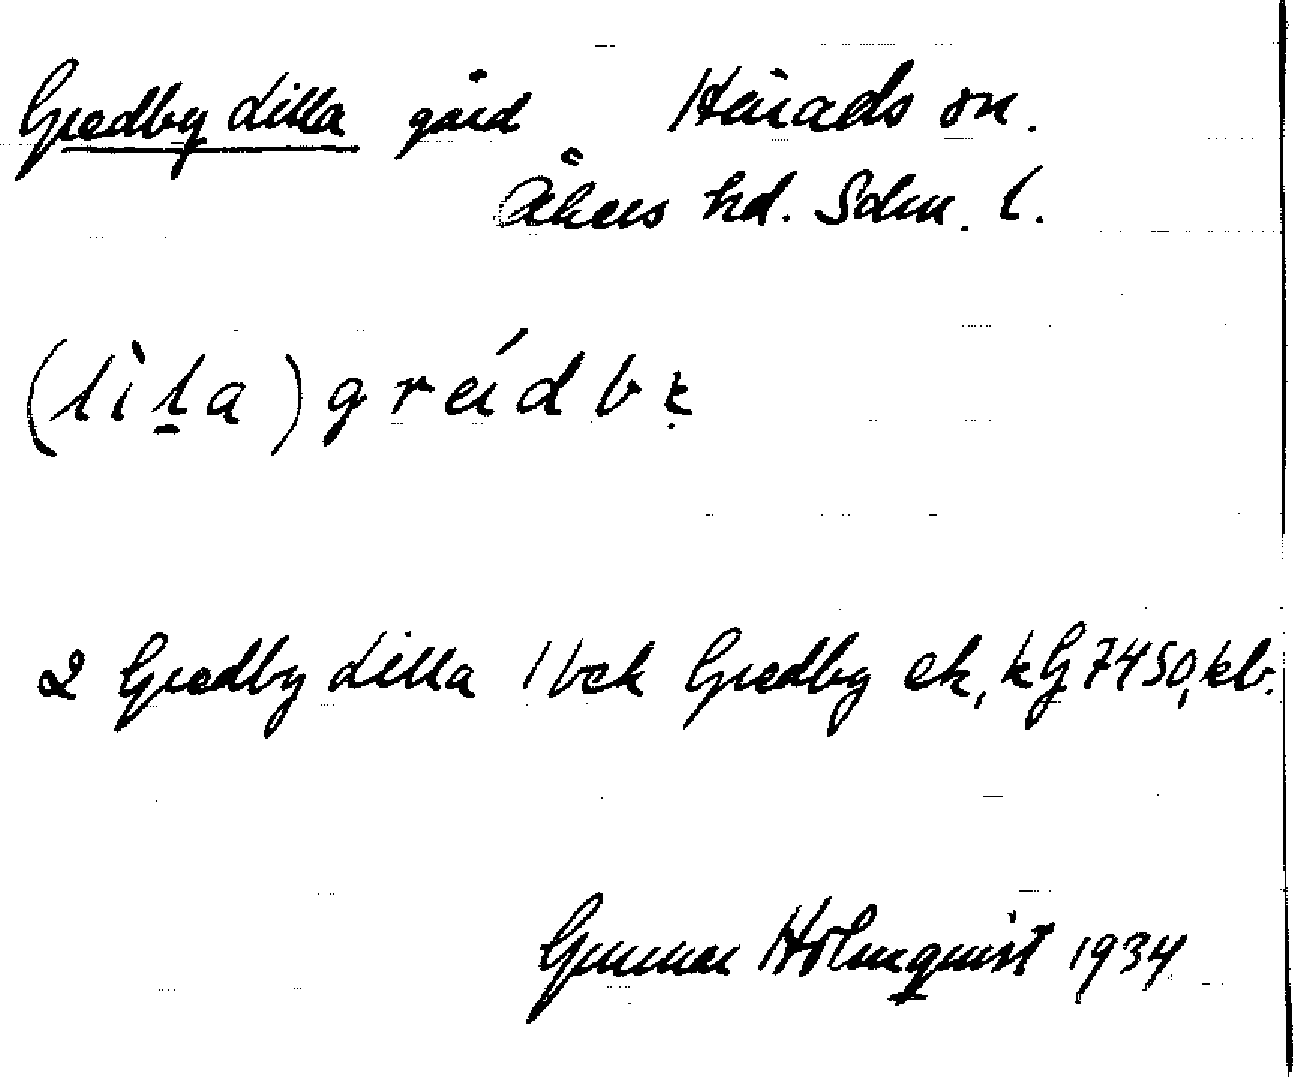 Gredby Lilla gård Härads sn.
Åkers hd. Södm. l.
(lìla) grédbɛ̣
2 Gredby Lilla 1 bek Gredby ek, kG 7450, kb.
Gunnar Holmquist 1934